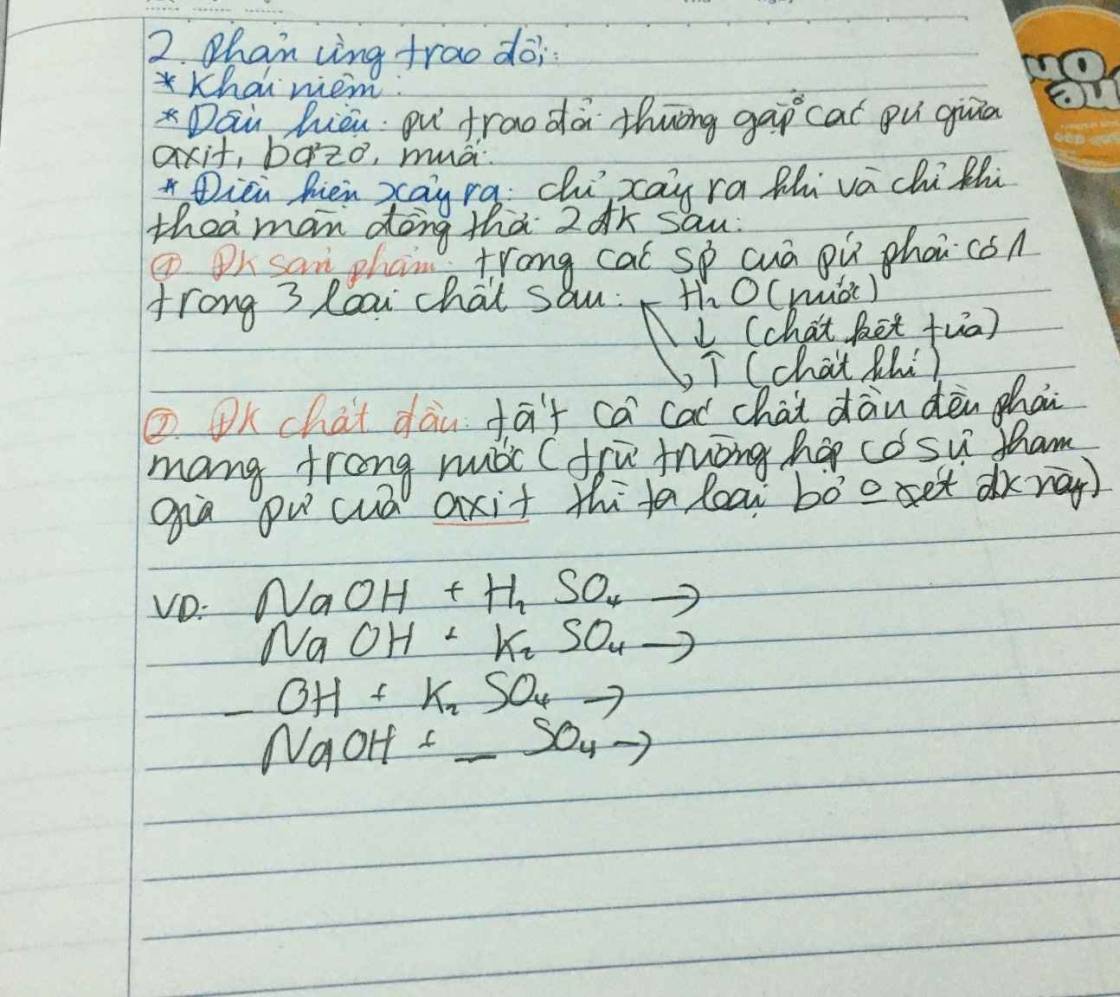 2. Phản ứng trao đổi:
* Khái niệm:
* Dấu hiệu: pư trao đổi thường gặp ở các pư giữa
axit, bazơ, muối.
* Điều kiện xảy ra: chỉ xảy ra khi và chỉ khi
thoả mãn đồng thời 2 đk sau:
① ĐK sản phẩm: trong các sp của pứ phải có 1
trong 3 loại chất sau: H₂O (nước)
↓ (chất kết tủa)
↑ (chất khí)
② ĐK chất đầu: tất cả các chất đầu đều phải
mang trong nước (trừ trường hợp có sự tham
gia pư của axit thì ta loại bỏ o xét đk này)
VD: NaOH + H₂SO₄ →
NaOH + K₂SO₄ →
_ OH + K₂SO₄ →
NaOH + _ SO₄ →